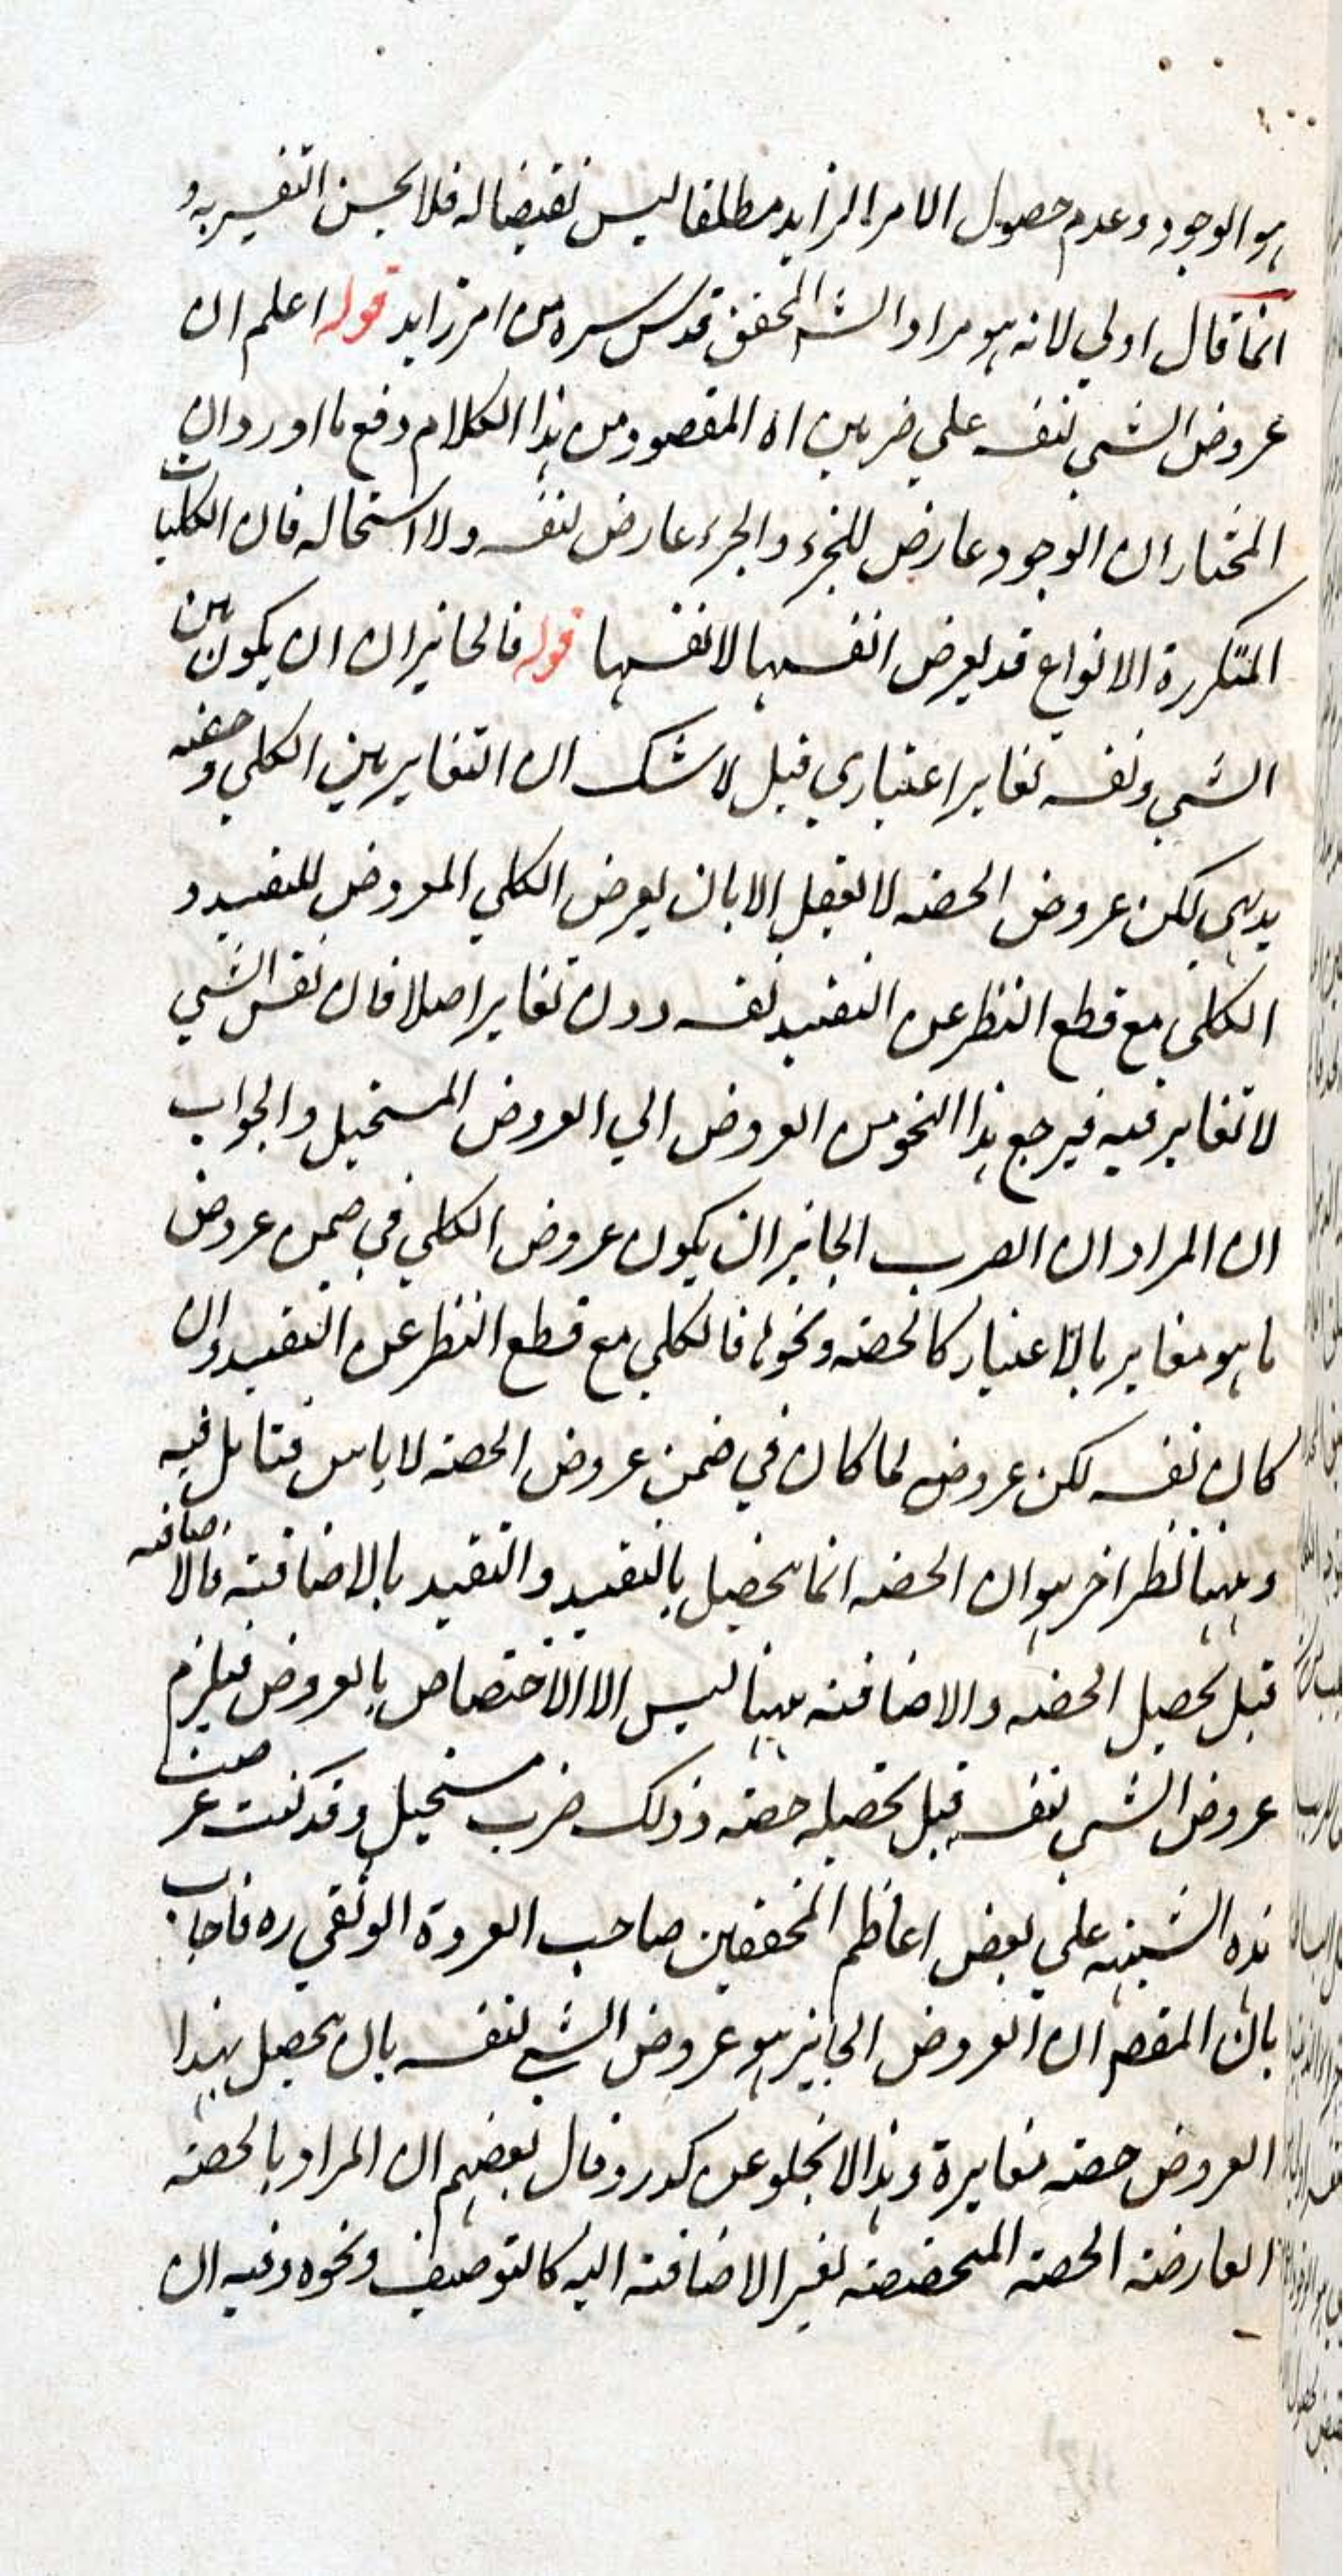 هو الوجود وعدم حصول الامر الزايد مطلقا ليس نقيضا له فلا يحسن التفسير به و
انما قال اولي لانه هو مراد الشه المحقق قدس سره من امر زايد قوله اعلم ان
عروض الشي لنفسه علي ضربين اه المقصود من هذا الكلام دفع ما اورد ان
المختار ان الوجود عارض للجزء والجزء عارض لنفسه ولا استحاله فان الكليات
المتكررة الانواع قد يعرض انفسها لانفسها قوله فالجايز ان ان يكون بين
الشي ونفسه تغاير اعتباري قيل لا شك ان التغاير بين الكلي وحصته
بديهي لكن عروض الحصه لا يعقل الا بان يعرض الكلي المعروض للتقييد و
الكلي مع قطع النظر عن التقييد نفسه دون تغاير اصلا فان نفس الشي
لا تغاير فيه فيرجع هذا النحو من العروض الي العروض المستحيل والجواب
ان المراد ان الضرب الجايز ان يكون عروض الكلي في ضمن عروض
ما هو مغاير بالاعتبار كالحصه ونحوها فالكلي مع قطع النظر عن التقييد وان
كان نفسه لكن عروضه لما كان في ضمن عروض الحصه لا باس فتامل فيه
وههنا نظر اخر هو ان الحصه انما تحصل بالتقييد والتقييد بالاضافة فالاضافه
قبل تحصيل الحصه والاضافته ههنا ليس الا الاختصاص بالعروض فيلزم
عروض الشي لنفسه قبل تحصيله حصته وذلك ضرب مستحيل وقد كنت عرضت
هذه الشبهه علي بعض اعاظم المحققين صاحب العروة الوثقي ره فاجاب
بان المقصود ان العروض الجايز هو عروض الشي لنفسه بان يحصل بهذا
العروض حصته مغايرة وهذا لا يخلو عن كدر وقال بعضهم ان المراد بالحصه
العارضة الحصه المتخصصه لغير الاضافته اليه كالتوصيف ونحوه وفيه ان